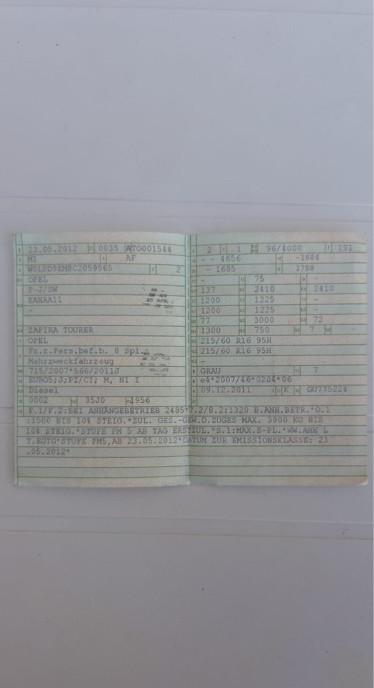 23.05.2012 0035 ATO001544
M1 AF
2
OPEL
P-J/SW
-
ZAFIRA TOURER
OPEL
Fz.z.Pers.bef.b. 8 Spl.
Mehrzweckfahrzeug
715/2007*566/2011J
EURO5;J;PI/CI; M, N1 I
Diesel
0002 35J0 1956
2 1 96/4000 191
- - 4656 -1884
- - 1685 1788
- 75 -
137 2410 2410
1200 1225 -
1200 1225 -
77 3000 72
1300 750 - 7 -
215/60 R16 95H
215/60 R16 95H
-
GRAU 7
e4*2007/46*0204*06
09.12.2011 K GU735224
F.1/F.2:BEI ANHÄNGEBETRIEB 2485*7.2/8.2:1320 B.ANH.BETR.*O.1
:1500 BIS 10% STEIG.*ZUL. GES.-GEW.D.ZUGES MAX. 3900 KG BIS
10% STEIG.*STUFE PM 5 AB TAG ERSTZUL.*S.1:MAX.5-PL.*WW.AHK L
T.EGTG*STUFE PM5,AB 23.05.2012*DATUM ZUR EMISSIONSKLASSE: 23
.05.2012*